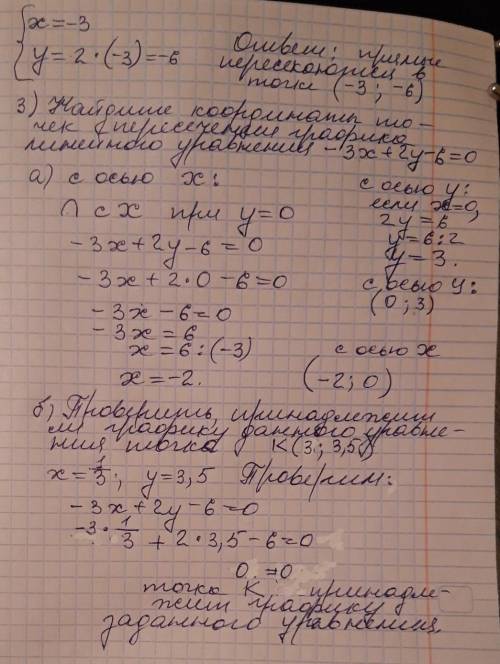 { x = -3
y = 2 · (-3) = -6
Ответ: прямые
пересекаются в
точке (-3 ; -6)
3) Найдите координаты то-
чек пересечения графика
линейного уравнения -3x + 2y - 6 = 0
а) с осью x:
∩ с X при y = 0
-3x + 2y - 6 = 0
-3x + 2·0 - 6 = 0
-3x - 6 = 0
-3x = 6
x = 6 : (-3)
x = -2.
с осью y:
если x = 0,
2y = 6
y = 6 : 2
y = 3.
с осью y:
(0 ; 3)
с осью x
(-2 ; 0)
б) Проверить, принадлежит
ли графику данного уравне-
ния точка K(3 ; 3,5)
x = 1/3 ; y = 3,5 Проверим:
-3x + 2y - 6 = 0
-3 · 1/3 + 2 · 3,5 - 6 = 0
0 = 0
точка K принадле-
жит графику
заданного уравнения.